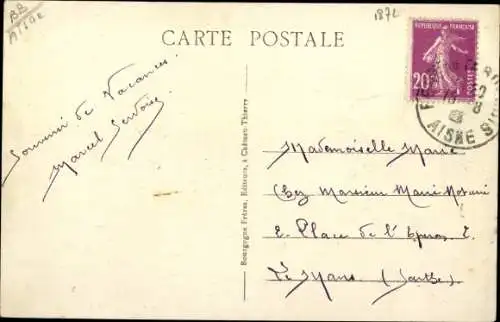 BB
Aisne
1872
CARTE POSTALE
REPUBLIQUE FRANÇAISE
20c
POSTES
AISNE
Souvenir de Vacances.
Marcel
Bourgogne Frères, Editeurs, à Château-Thierry
Mademoiselle Marie
Chez Monsieur Marie
2. Place de l'Eperon 2.
Le Mans (Sarthe)